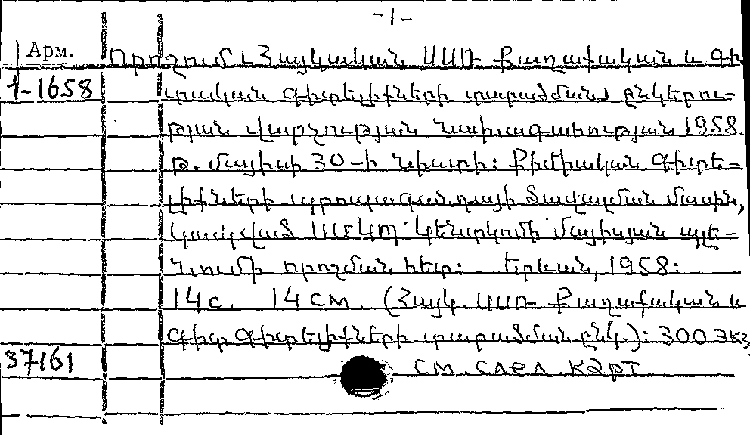 -1-
Арм.
1-1658
Որոշում Հայկական ՍՍՌ Քաղաքական և Գի-
տական Գիտելիքների տարածման ընկերու-
թյան վարչության նախագահության 1958
թ. մայիսի 30-ի նիստի: Քիմիական Գիտե-
լիքների պրոպագանդայի ծավալման մասին,
կապված ՍՄԿԿ Կենտկոմի մայիսյան պլե-
նումի որոշման հետ: Երևան, 1958:
14с. 14см. (Հայկ. ՍՍՌ Քաղաքական և
Գիտ. Գիտելիքների տարածման ընկ.): 300 экз
37161
см. след. карт